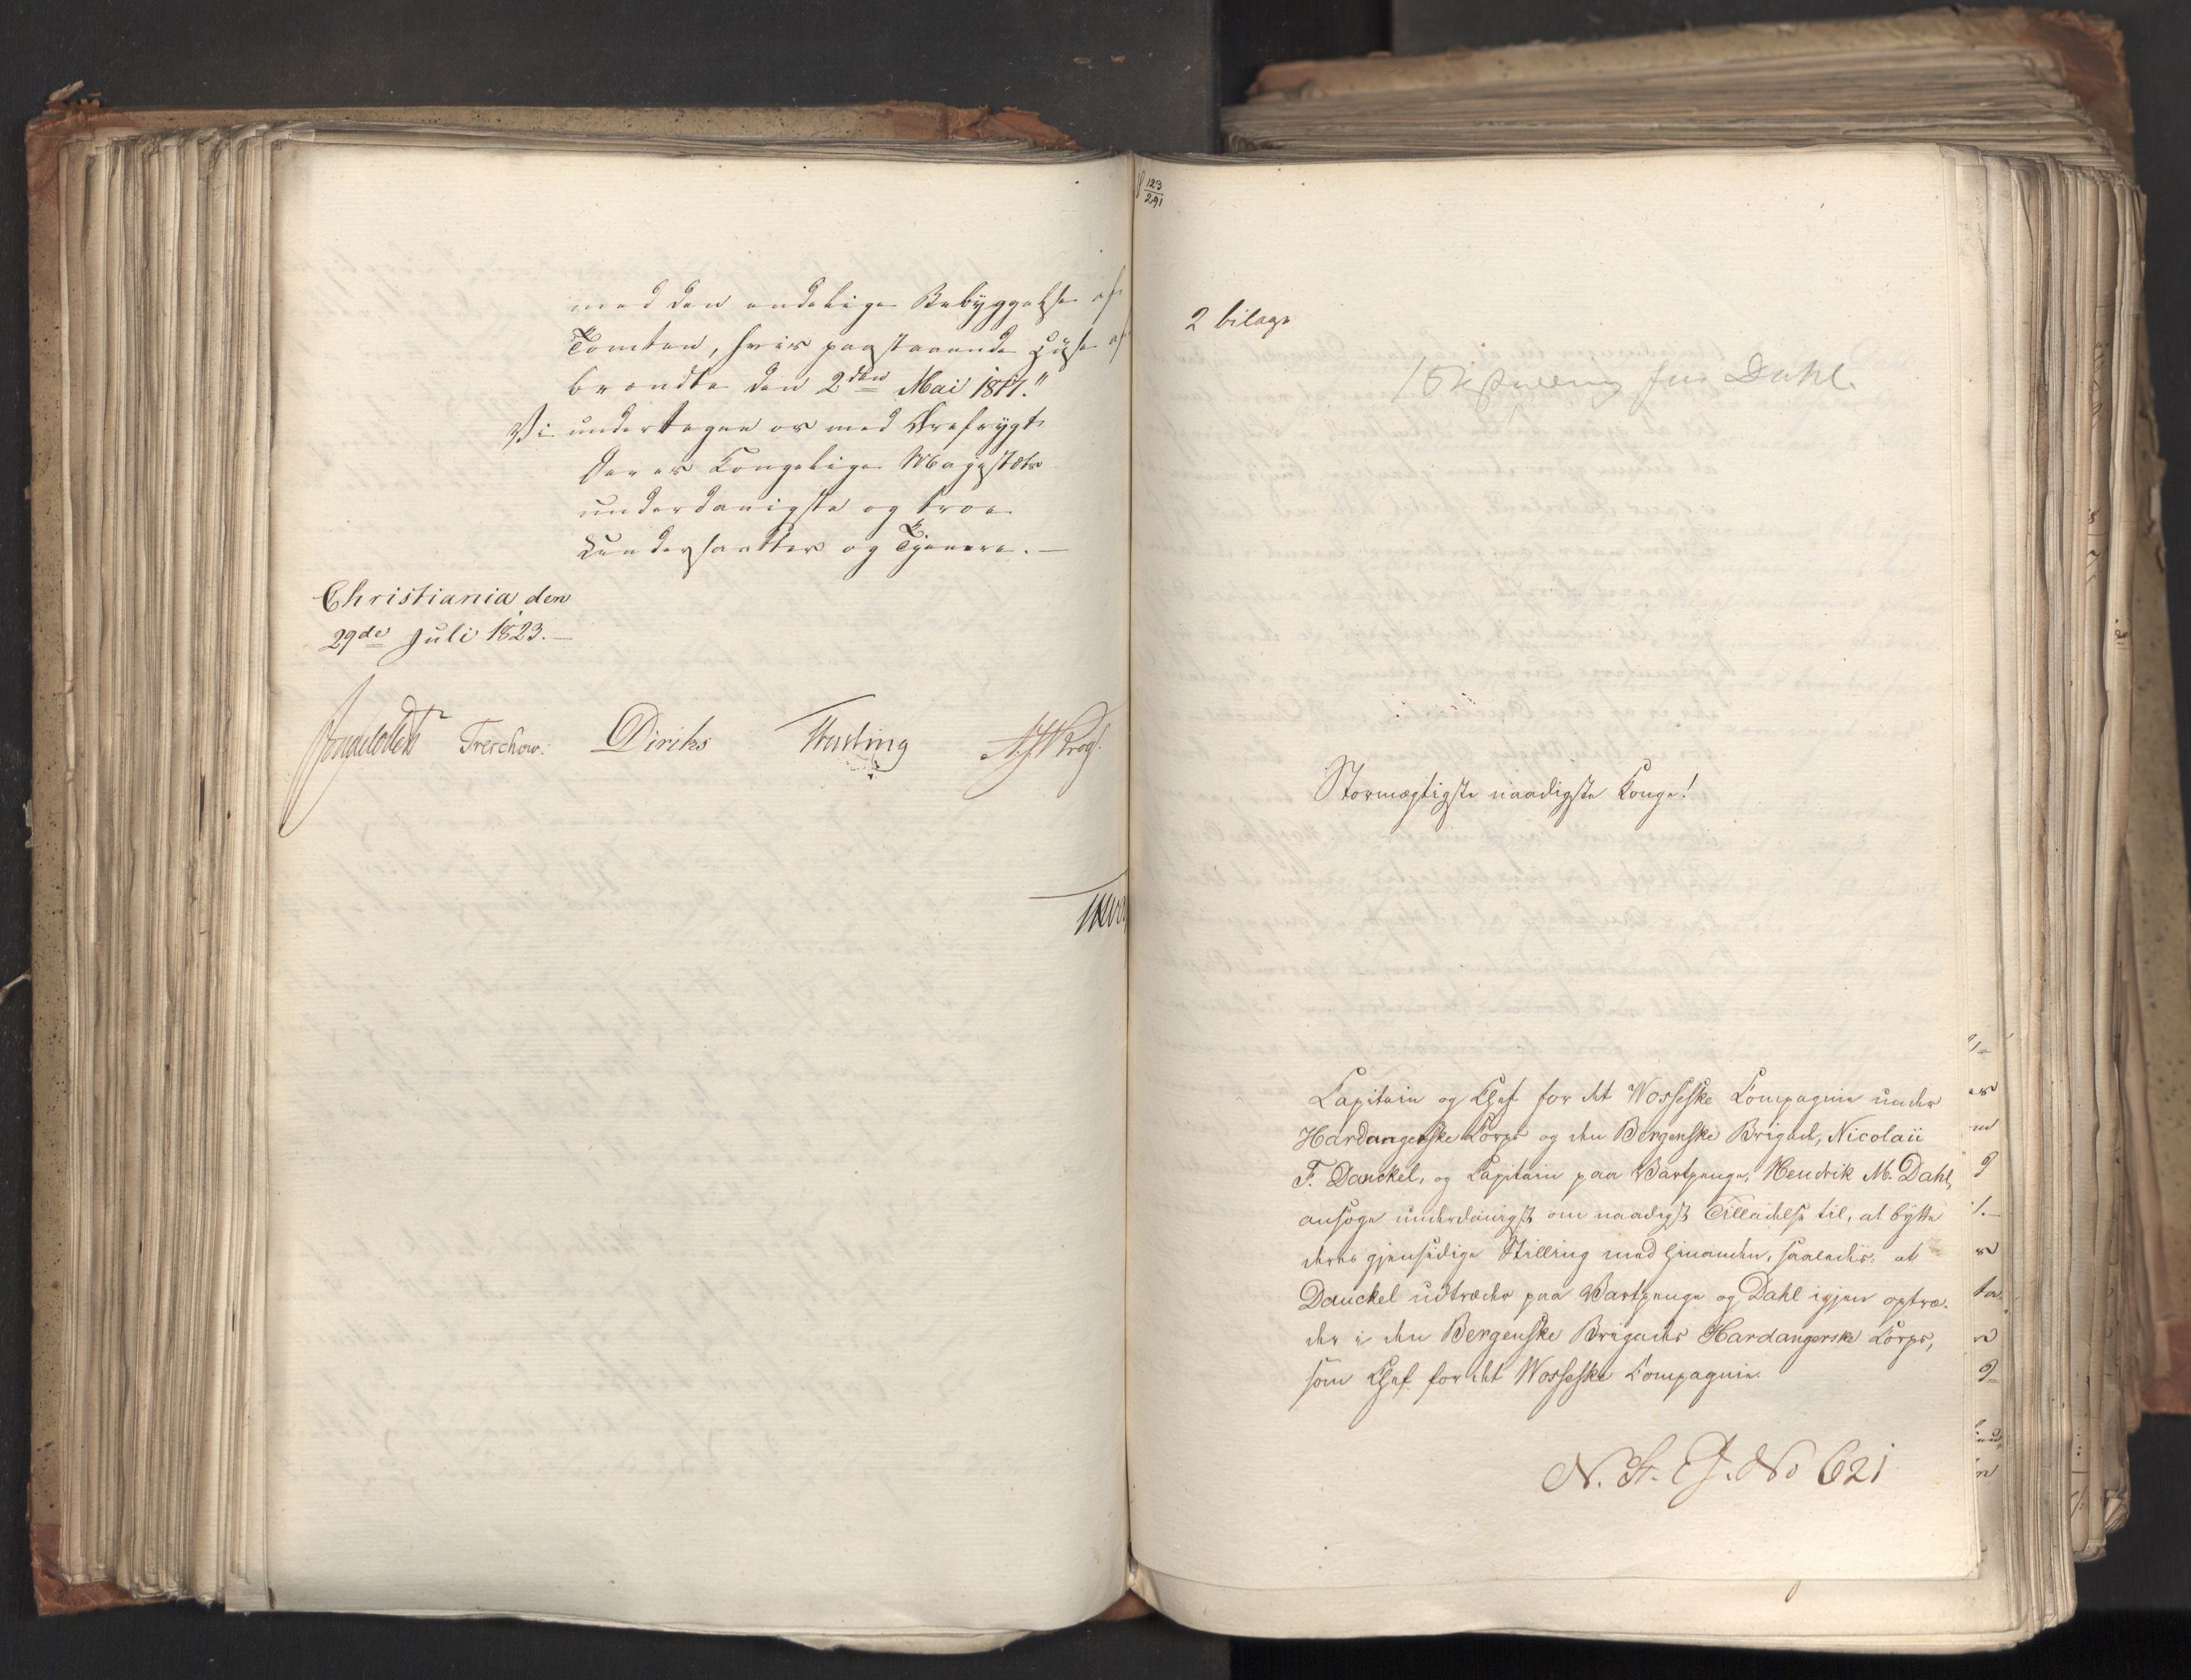 med den endelige Bebyggelse af
Tomten, hvis paastaaende Huse af
brændte den 2den Mai 1817."
Vi undertegne os med Ærefrygt
Deres Kongelige Majestæts
underdanigste og troe
Undersaatter og Tjenere. —
Christiania den
29de Juli 1823. —
Treschow. Diriks
123
291
2 bilage
1 Bestalling for Dahl.
Stormægtigste naadigste Konge!
Capitain og Chef for det Wossiske Compagnie under
Hardangerske Corps og den Bergenske Brigade, Nicolaii
F. Danckel, og Capitain paa Vartpenge, Hendrik M. Dahl,
ansøge underdanigst om naadigst Tilladelse til, at bytte
deres gjensidige Stilling med hinanden, saaledes, at
Danckel udtræder paa Vartpenge og Dahl igjen optræ-
der i den Bergenske Brigades Hardangerske Corps,
som Chef for det Wossiske Compagnie.
N. St. E. No 621